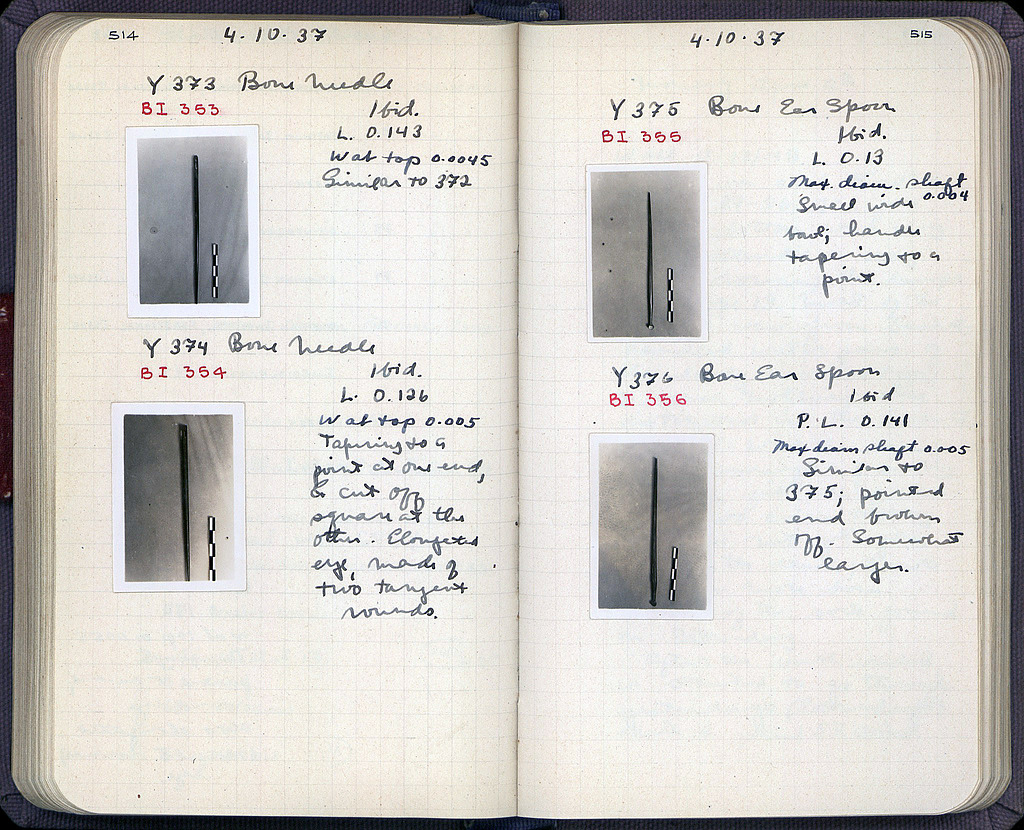 514
4.10.37
Y 373 Bone Needle
BI 353
Ibid.
L. 0.143
W at top 0.0045
Similar to 372
Y 374 Bone Needle
BI 354
Ibid.
L. 0.126
W at top 0.005
Tapering to a
point at one end,
& cut off
square at the
other. Elongated
eye, made of
two tangent
rounds.
4.10.37
515
Y 375 Bone Ear Spoon
BI 355
Ibid.
L. 0.13
Max. diam. shaft
0.004
Small
bowl; handle
tapering to a
point.
Y 376 Bone Ear Spoon
BI 356
Ibid
P. L. 0.141
Max diam shaft 0.005
Similar to
375; pointed
end broken
off. Somewhat
larger.